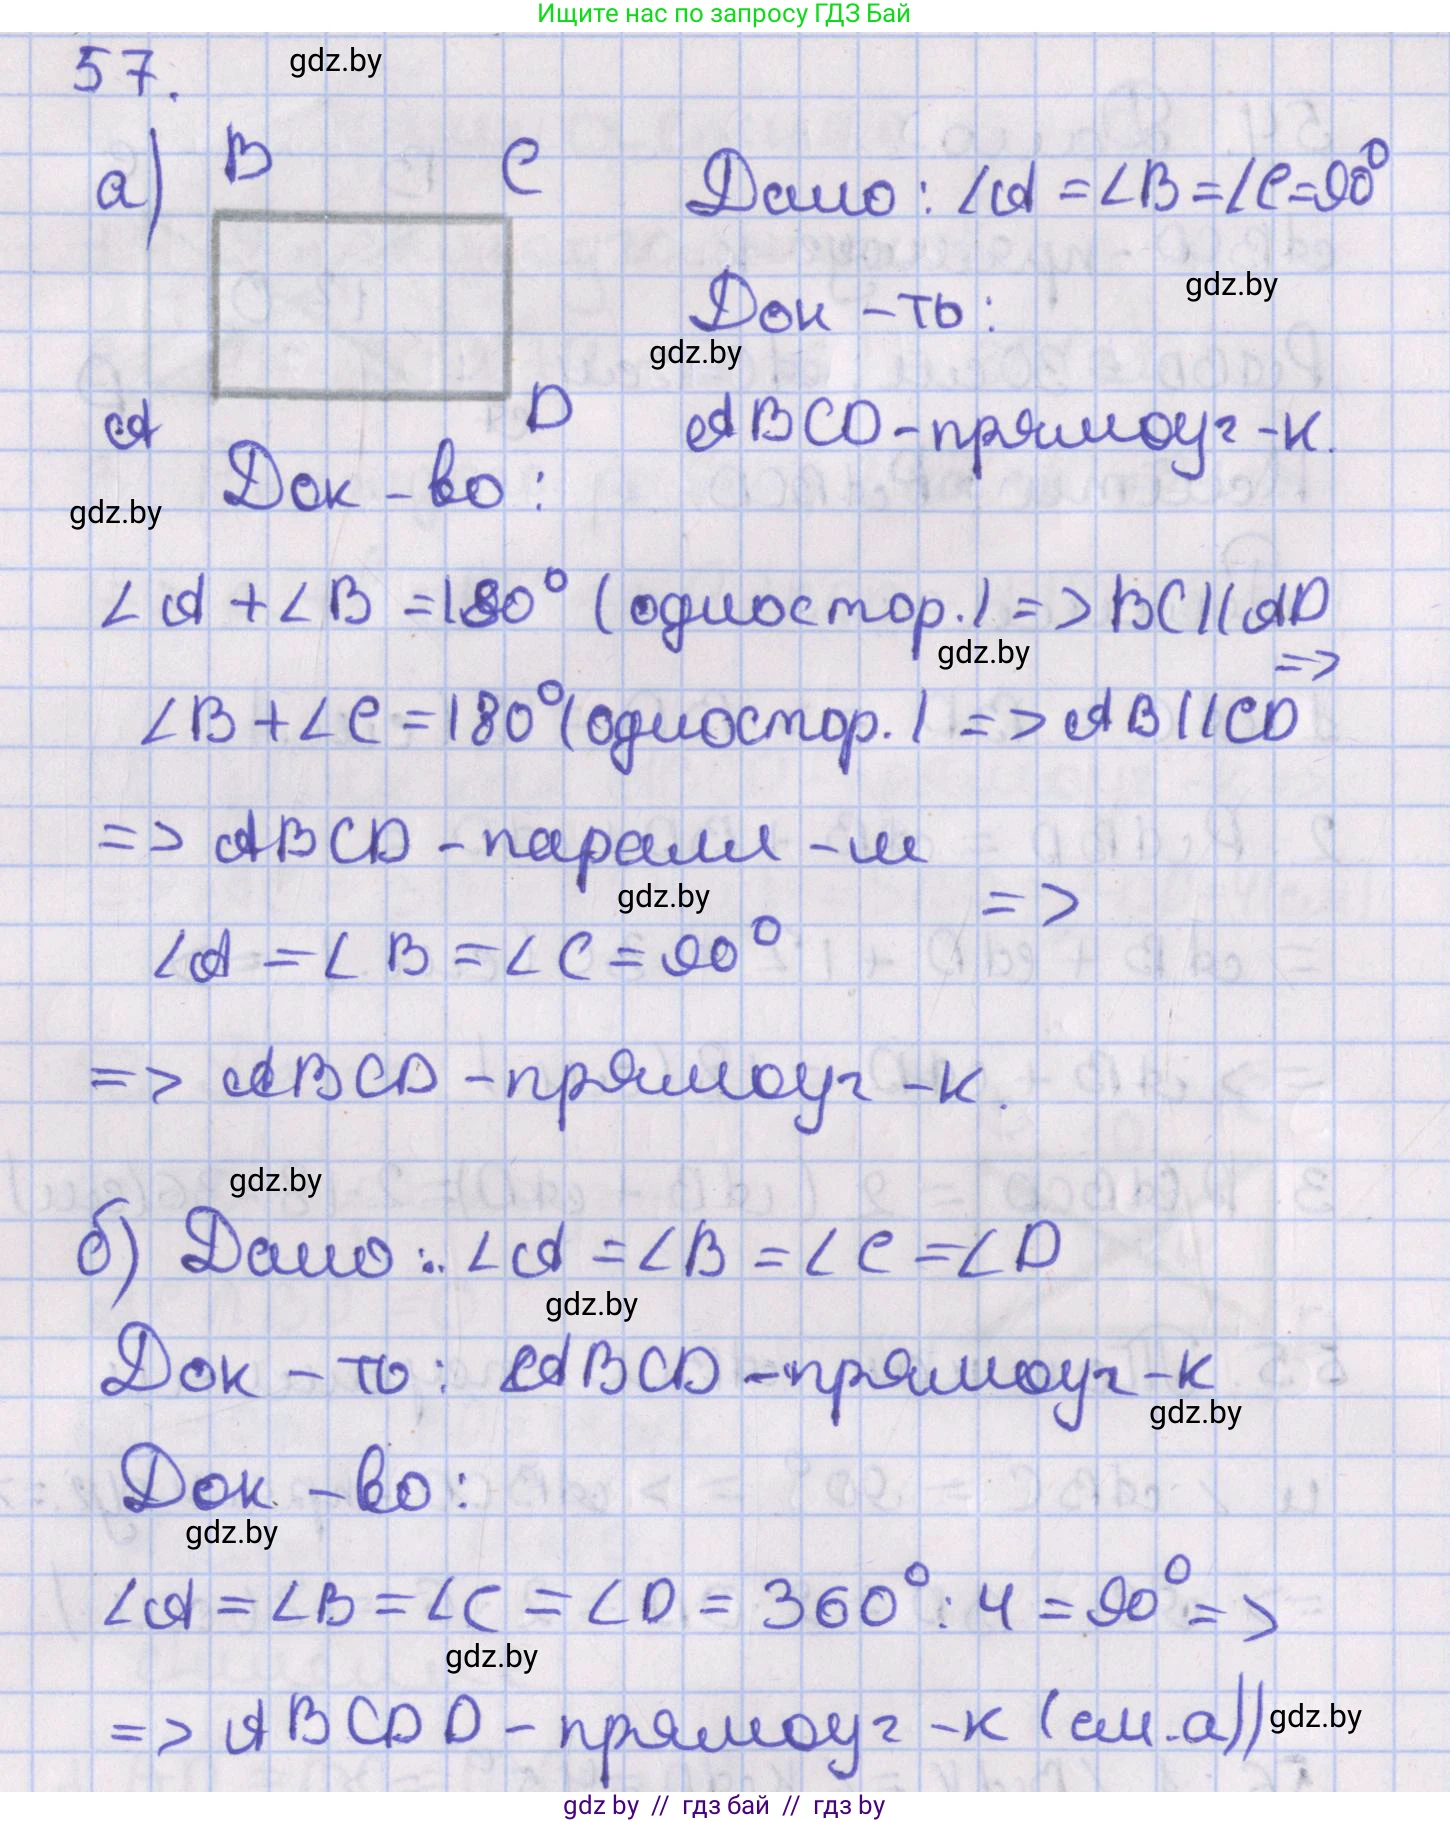 Ищите нас по запросу ГДЗ Бай
57.
gdz.by
а) B C
Дано: ∠A = ∠B = ∠C = 90°
gdz.by
Док-ть:
gdz.by
A D
ABCD - прямоуг-к.
Док-во:
gdz.by
∠A + ∠B = 180° (одностор.) => BC || AD
gdz.by
=>
∠B + ∠C = 180° (одностор.) => AB || CD
=> ABCD - паралл-м
gdz.by
=>
∠A = ∠B = ∠C = 90°
=> ABCD - прямоуг-к.
gdz.by
б) Дано: ∠A = ∠B = ∠C = ∠D
gdz.by
Док-ть: ABCD - прямоуг-к
gdz.by
Док-во:
gdz.by
∠A = ∠B = ∠C = ∠D = 360° : 4 = 90° =>
gdz.by
=> ABCDD - прямоуг-к (см.а))
gdz.by
gdz by // гдз бай // гдз by